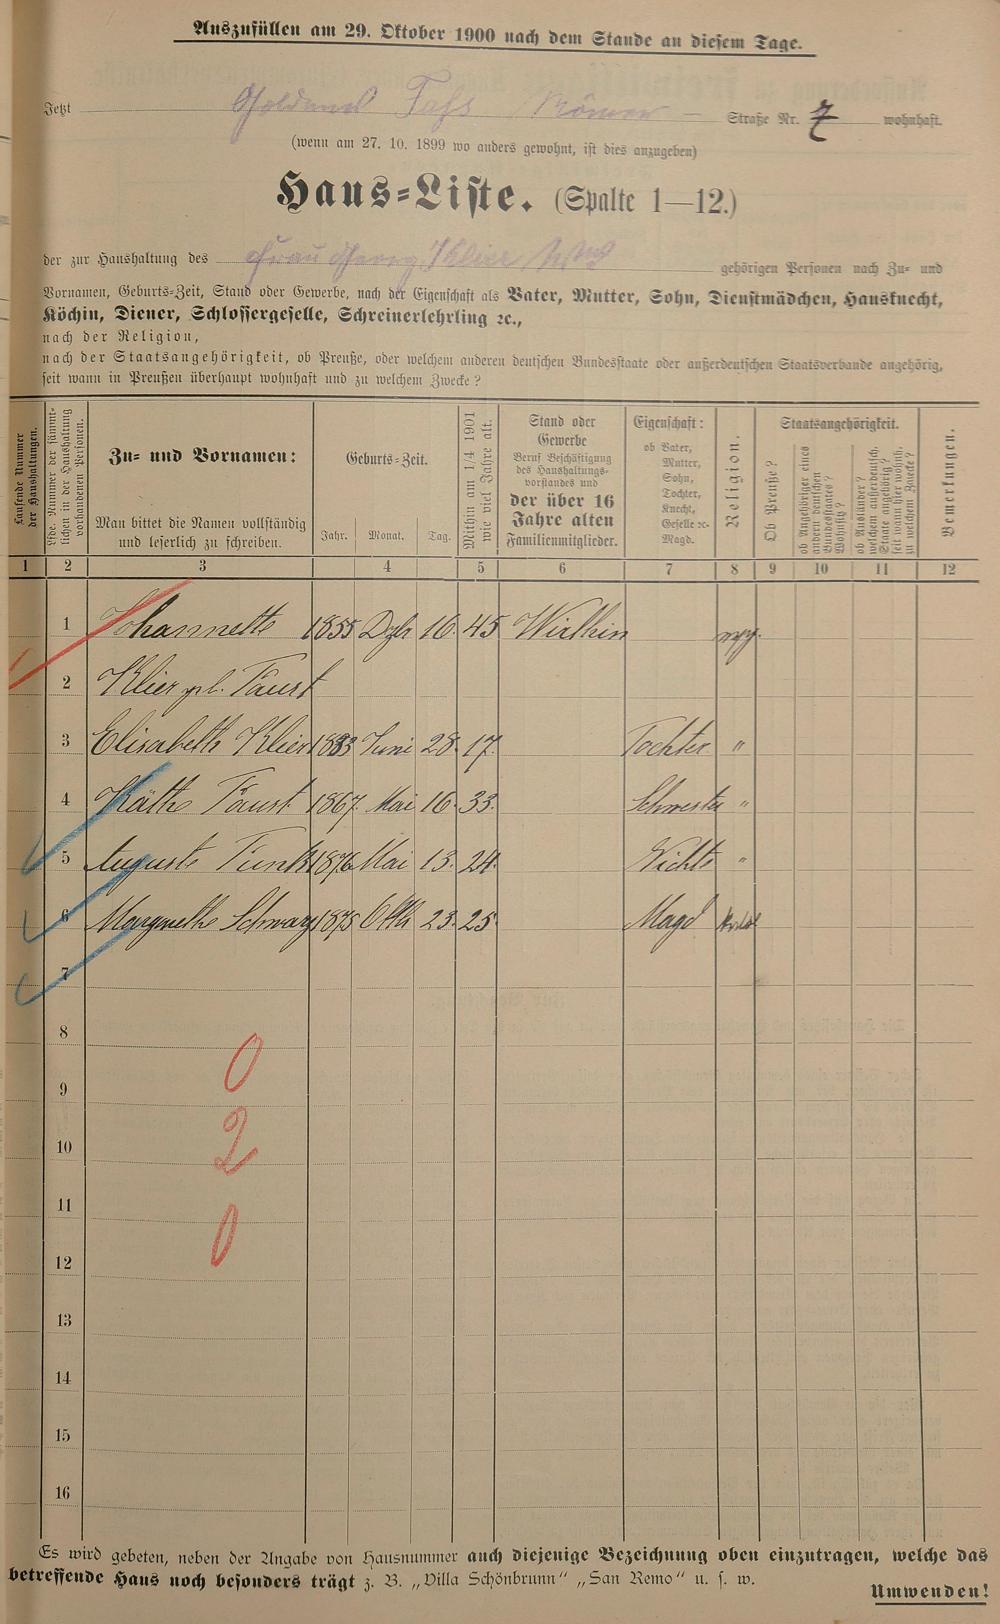 Auszufüllen am 29. Oktober 1900 nach dem Stande an diesem Tage.
Jetzt Goldenes Fass Römer- Straße Nr. 7 wohnhaft.
(wenn am 27. 10. 1899 wo anders gewohnt, ist dies anzugeben)
Haus-Liste. (Spalte 1—12.)
der zur Haushaltung des Frau Georg Klier Wwe gehörigen Personen nach Zu- und
Vornamen, Geburts-Zeit, Stand oder Gewerbe, nach der Eigenschaft als Vater, Mutter, Sohn, Dienstmädchen, Hausknecht,
Köchin, Diener, Schlossergeselle, Schreinerlehrling ꝛc.,
nach der Religion,
nach der Staatsangehörigkeit, ob Preuße, oder welchem anderen deutschen Bundesstaate oder außerdeutschen Staatsverbande angehörig,
seit wann in Preußen überhaupt wohnhaft und zu welchem Zwecke?
Laufende Nummer
der Haushaltungen.
Lfde. Nummer der sämmt-
lichen in der Haushaltung
vorhandenen Personen.
Zu- und Vornamen:
Man bittet die Namen vollständig
und leserlich zu schreiben.
Geburts-Zeit.
Jahr. Monat. Tag.
Mithin am 1/4 1901
wie viel Jahre alt.
Stand oder
Gewerbe
Beruf Beschäftigung
des Haushaltungs-
vorstandes und
der über 16
Jahre alten
Familienmitglieder.
Eigenschaft:
ob Vater,
Mutter,
Sohn,
Tochter,
Knecht,
Geselle ꝛc-
Magd.
Religion.
Staatsangehörigkeit.
Ob Preuße?
ob Angehöriger eines
andern deutschen
Bundesstaates?
Wohnsitz?
ob Ausländer?
welchem außerdeutsch.
Staate angehörig?
seit wann hier wohnh.
zu welchem Zwecke?
Bemerkungen.
1 2 3 4 5 6 7 8 9 10 11 12
1 Johannette 1855 Dzbr 16. 45 Wirthin
2 Klier gb. Faust
3 Elisabeth Klier 1883 Juni 28. 17. Tochter "
4 Käthe Faust 1867. Mai 16. 33. Schwester "
5 Auguste Funk 1876 Mai 13. 24. Nichte "
6 Margarethe Schwarz 1875 Oktb 23. 25. Magd
7
8
0
9
10 2
11
0
12
13
14
15
16
Es wird gebeten, neben der Angabe von Hausnummer auch diejenige Bezeichnung oben einzutragen, welche das
betreffende Haus noch besonders trägt z. B. „Villa Schönbrunn“ „San Remo“ u. s. w.
Umwenden!